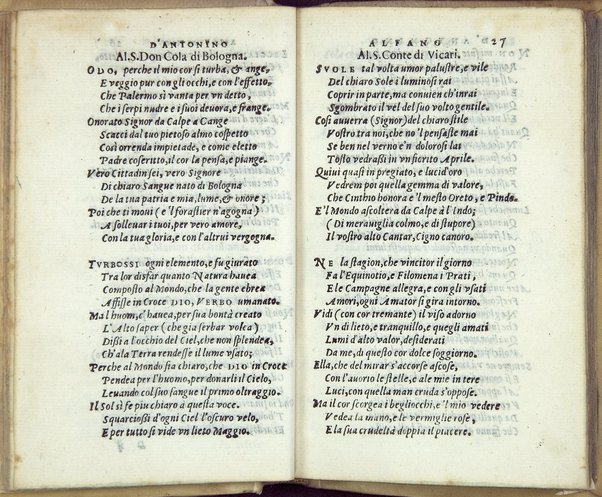 D'ANTONINO
Al S. Don Cola di Bologna.
ODO, perche il mio cor si turba, & ange,
E veggio pur con gli occhi, e con l'effetto,
Che Palermo si vanta per vn detto
Che i serpi nudre e i suoi deuora, e frange.
Onorato Signor da Calpe a Gange
Scacci dal tuo pietoso almo cospetto
Così orrenda impietade, e come eletto
Padre coscritto, il cor la pensa, e piange.
Vero Cittadin sei, vero Signore
Di chiaro Sangue nato di Bologna
De la tua patria e mia, lume, & onore;
Poi che ti moui (e'l forastier n'agogna)
A solleuar i tuoi, per vero amore,
Con la tua gloria, e con l'altrui vergogna.
TVRBOSSI ogni elemento, e fu giurato
Tra lor disfar quanto Natura hauea
Composto al Mondo, che la gente ebrea
Affisse in Croce DIO, VERBO umanato.
Ma l'huom, c'hauea, per sua bontà creato
L'Alto saper (che già serbar volea)
Dissi a l'occhio del Ciel, che non splendea,
Ch'a la Terra rendesse il lume vsato;
Perche al Mondo sia chiaro, che DIO in Croce
Pendea per l'huomo, per donarli il Cielo,
Leuando col suo sangue il primo oltraggio.
Il Sol si fe piu chiaro a questa voce.
Squarciossi d'ogni Ciel l'oscuro velo,
E per tutto si vide vn lieto Maggio.
ALFANO 27
Al S. Conte di Vicari.
SVOLE tal volta umor palustre, e vile
Del chiaro Sole i luminosi rai
Coprir in parte, ma conuien ch'in rai
Sgombrato il vel del suo volto gentile.
Così auuerra (Signor) del chiaro stile
Vostro tra noi, che no'l pensaste mai
Se ben nel verno e'n dolorosi lai
Tosto vedrassi vn fiorito Aprile.
Quiui quasi in pregiato, e lucid'oro
Vedrem poi quella gemma di valore,
Che Cinthio honora e'l mesto Oreto, e Pindo.
E'l Mondo ascolterà da Calpè a l'Indo;
(Di merauiglia colmo, e di stupore)
Il vostro alto Cantar, Cigno canoro.
NE la stagion, che vincitor il giorno
Fa l'Equinotio, e Filomena i Prati,
E le Campagne allegra, e con gli vsati
Amori, ogni Amator si gira intorno.
Vidi (con cor tremante) il viso adorno
Vn di lieto, e tranquillo, e quegli amati
Lumi d'alto valor, desiderati
Da me, di questo cor dolce soggiorno.
Ella, che del mirar s'accorse ascose,
Con l'auorio le stelle, e a le mie in tere
Luci, con quella man cruda s'oppose.
Ma il cor scorgea i begliocchi, e'l mio vedere
Vedea la mano, e le vermiglie rose,
E la sua crudeltà doppia il piacere.